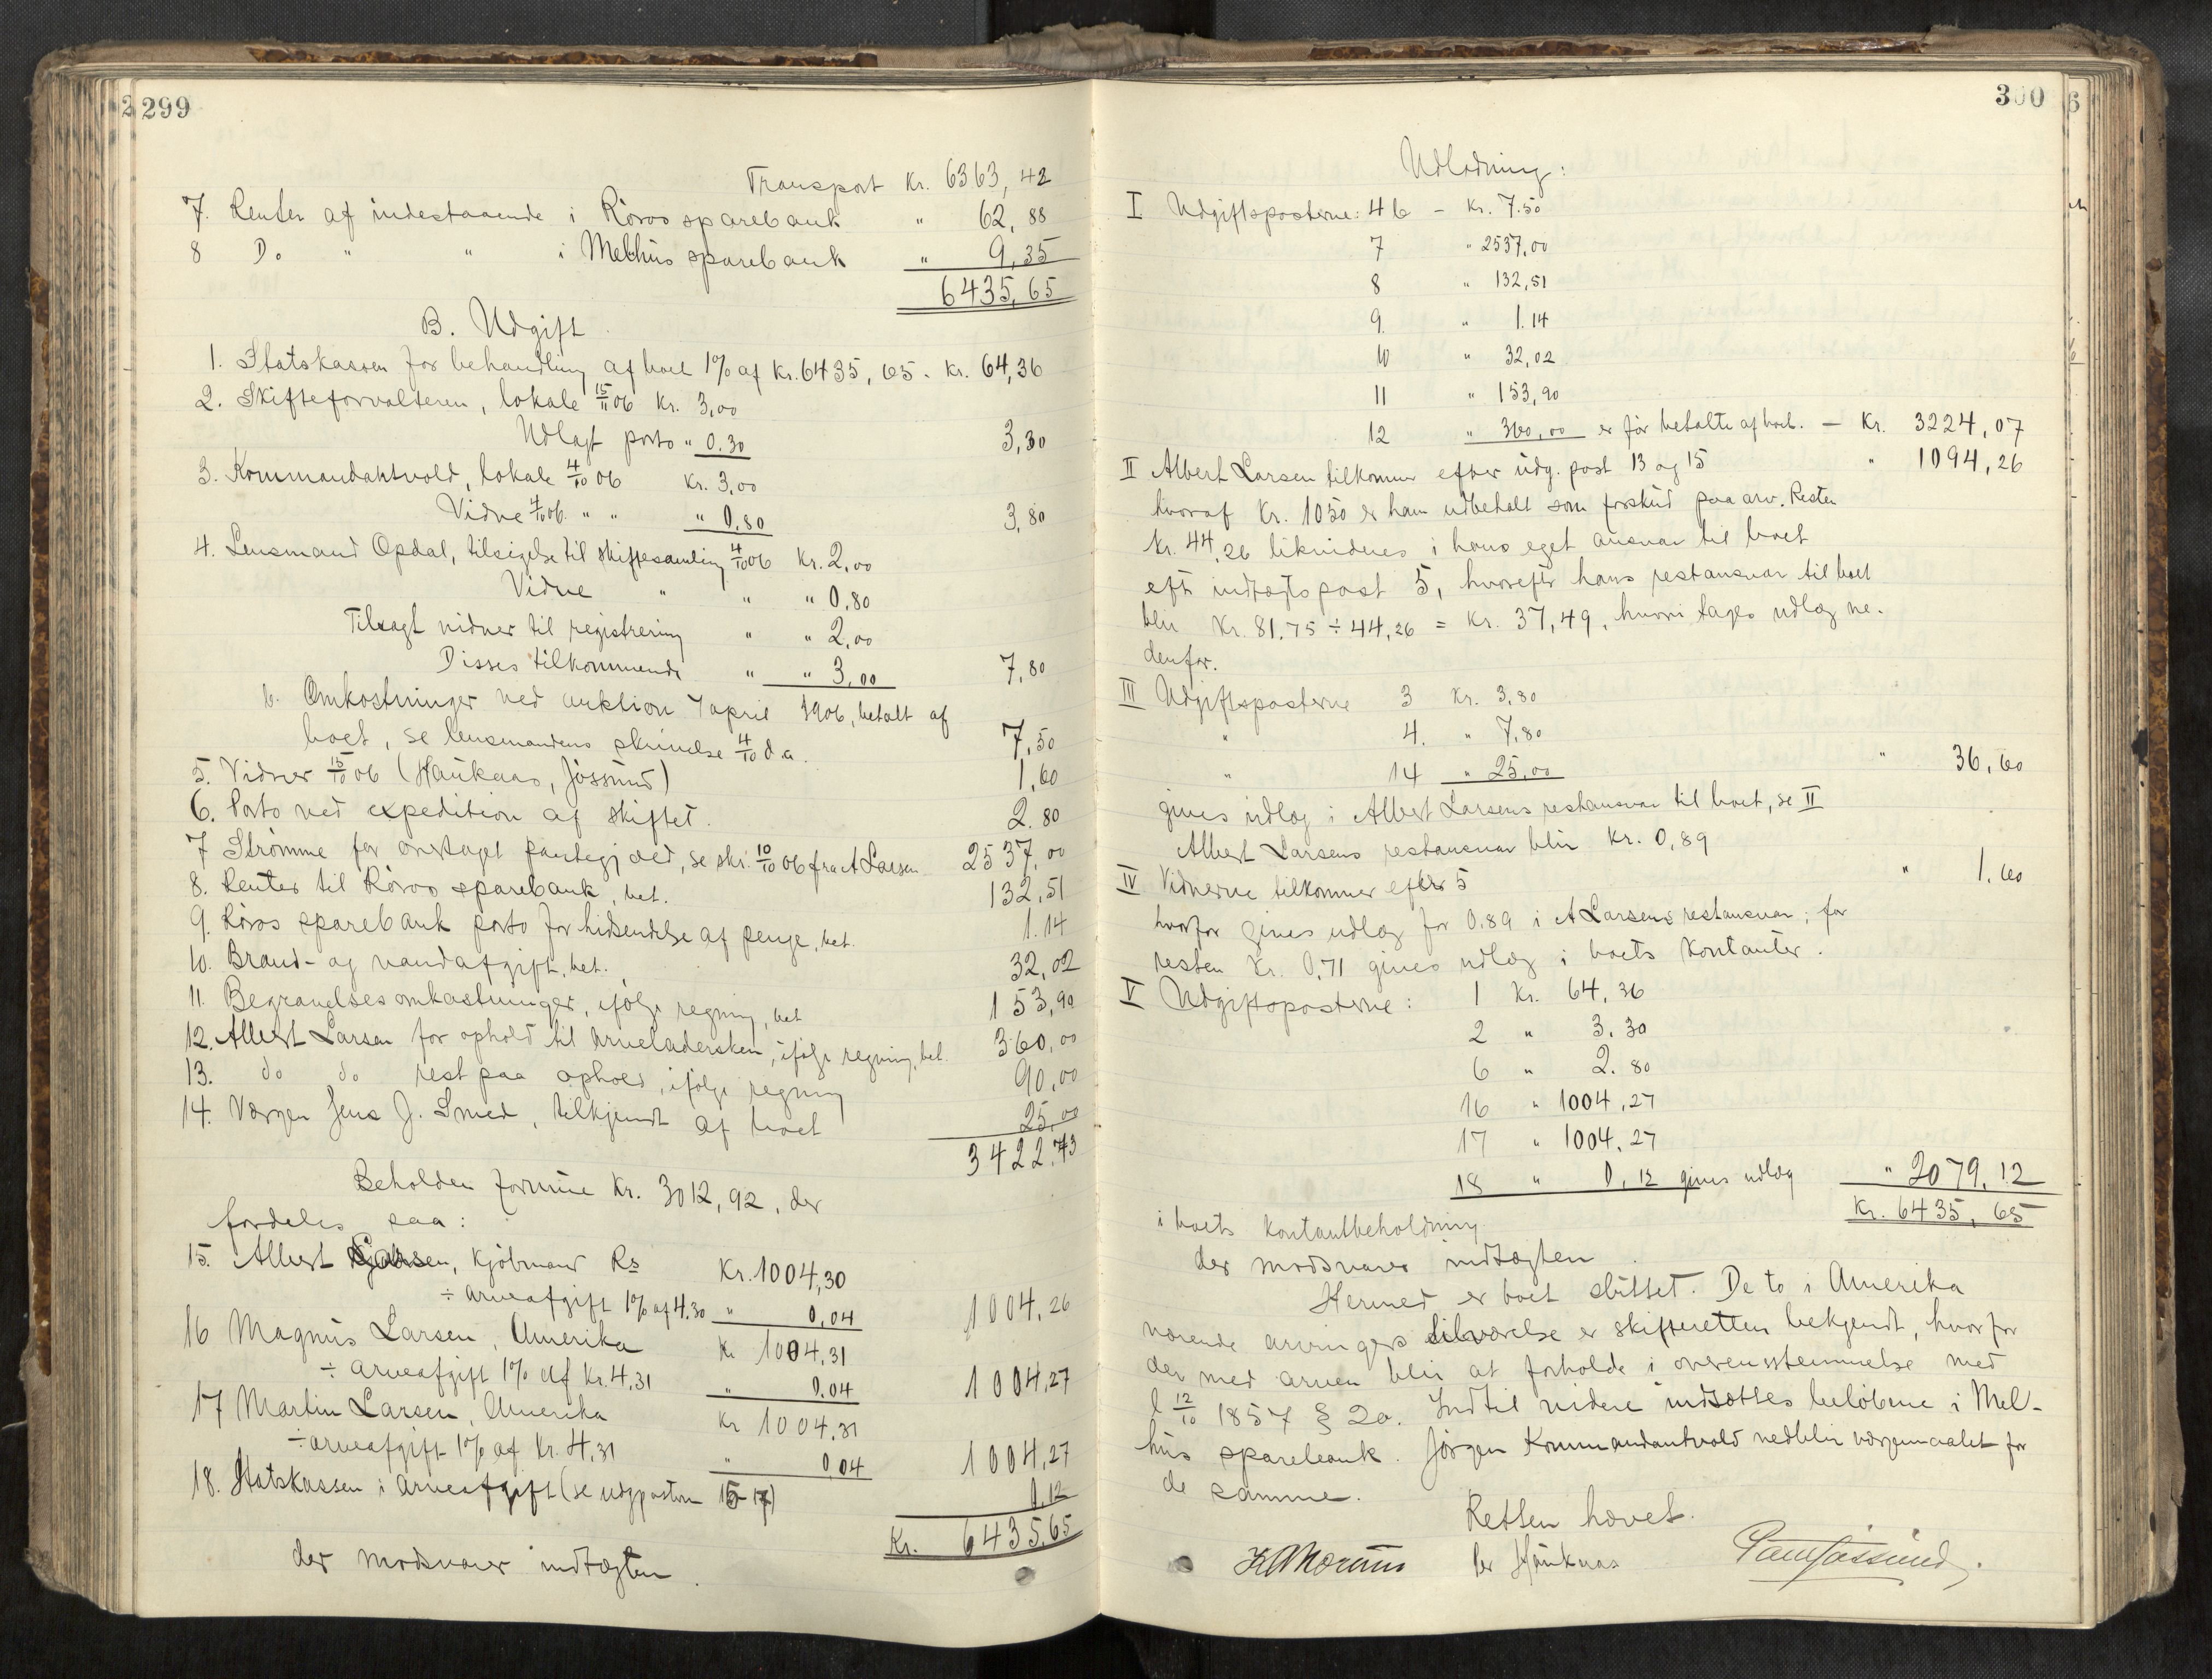 299
Transport Kr. 6363,42
7. Renter af indestaaende i Röros sparebank " 62,88
8 Do " " i Melhus sparebank " 9,35
6435,65
B. Udgift
1. Statskassen for behandling af boet 1% af Kr. 6435,65 - Kr. 64,36
2. Skifteforvalteren, lokale 15/11 06 Kr. 3,00
Udlagt porto " 0.30 3,30
3. Kommandantvold, lokale 4/10 06 Kr. 3,00
Vidne 4/10 06. " " " 0,80 3,80
4. Lensmand Opdal, tilsigelse til skiftesamling 4/10 06 Kr. 2,00
Vidne " " " 0,80
Tilsagt vidner til registrering " " 2,00
Disses tilkommende " " 3,00 7,80
b. Omkostninger ved auktion 7 april 1906, betalt af
boet, se lensmandens skrivelse 4/10 d.a. 7,50
5. Vidner 15/10 06 (Haukaas, Jössund) 1,60
6. Porto ved expedition af skiftet. 2.80
7 Strömme for overtaget pantegjæld, se skr. 10/10 06 fra A Larsen 2537,00
8. Renter til Röros sparebank, bet. 132,51
9. Röros sparebank porto for hidsendelse af penge, bet. 1.14
10. Brand- og vandafgift, bet. 32,02
11. Begravelsesomkostninger, ifölge regning, bet 153,90
12. Albert Larsen for ophold til arveladersken, ifölge regning, bet. 360,00
13. do do rest paa ophold, ifölge regning 90,00
14. Værgen Jens J. Smed, tilkjendt af boet 25,00
3422.73
Beholden formue Kr. 3012,92, der
fordeles paa:
15. Albert Larsen, Kjöbmand Rs Kr. 1004,30
÷ arveafgift 1% af 4.30 " 0,04 1004,26
16 Magnus Larsen, Amerika Kr 1004,31
÷ arveafgift 1% af Kr. 4,31 " 0.04 1004,27
17 Martin Larsen, Amerika Kr 1004,31
÷ arveafgift 1% af Kr. 4,31 " 0,04 1004,27
18. Statskassen i arveafgift (se udgposterne 15-17) 0,12
Kr. 6435,65
der modsvarer indtægten.
300
6
Udlodning:
I Udgiftsposterne: 4 b - Kr. 7.50
7 " 2537,00
8 " 132,51
9 " 1.14
10 " 32,02
11 " 153,90
12 " 360,00 er för betalte af boet. - Kr. 3224,07
II Albert Larsen tilkommer efter udg. post 13 og 15 " 1094,26
hvoraf Kr. 1050 er ham udbetalt som forskud paa arv. Resten
Kr. 44,26 likvideres i hans eget ansvar til boet
eft indtægtspost 5, hvorefter hans restansvar til boet
blir Kr. 81.75 ÷ 44,26 = Kr. 37,49, hvori tages udlæg ne-
denfor.
III Udgiftsposterne 3 Kr. 3,80
" 4. " 7,80
" 14 " 25,00 " 36,60
gives udlæg i Albert Larsens restansvar til boet, se II
Albert Larsens restansvar blir Kr. 0,89
IV Vidnerne tilkommer efter 5 " 1.60
hvorfor gives udlæg for 0.89 i A Larsens restansvar; for
resten Kr. 0,71 gives udlæg i boets kontanter.
V Udgiftsposterne: 1 Kr. 64,36
2 " 3.30
6 " 2.80
16 " 1004,27
17 " 1004.27
18 " 0,12 gives udlæg " 2079,12
i boets kontantbeholdning Kr. 6435,65
der modsvarer indtægten.
Hermed er boet sluttet. De to i Amerika
værende arvingers tilværelse er skifteretten bekjendt, hvorfor
der med arven blir at forholde i overensstemmelse med
l 12/10 1857 § 20. Indtil videre indsættes belöbene i Mel-
hus sparebank. Jörgen Kommandantvold vedblir værgemaalet for
de samme.
Retten hævet.
Per Haukaas